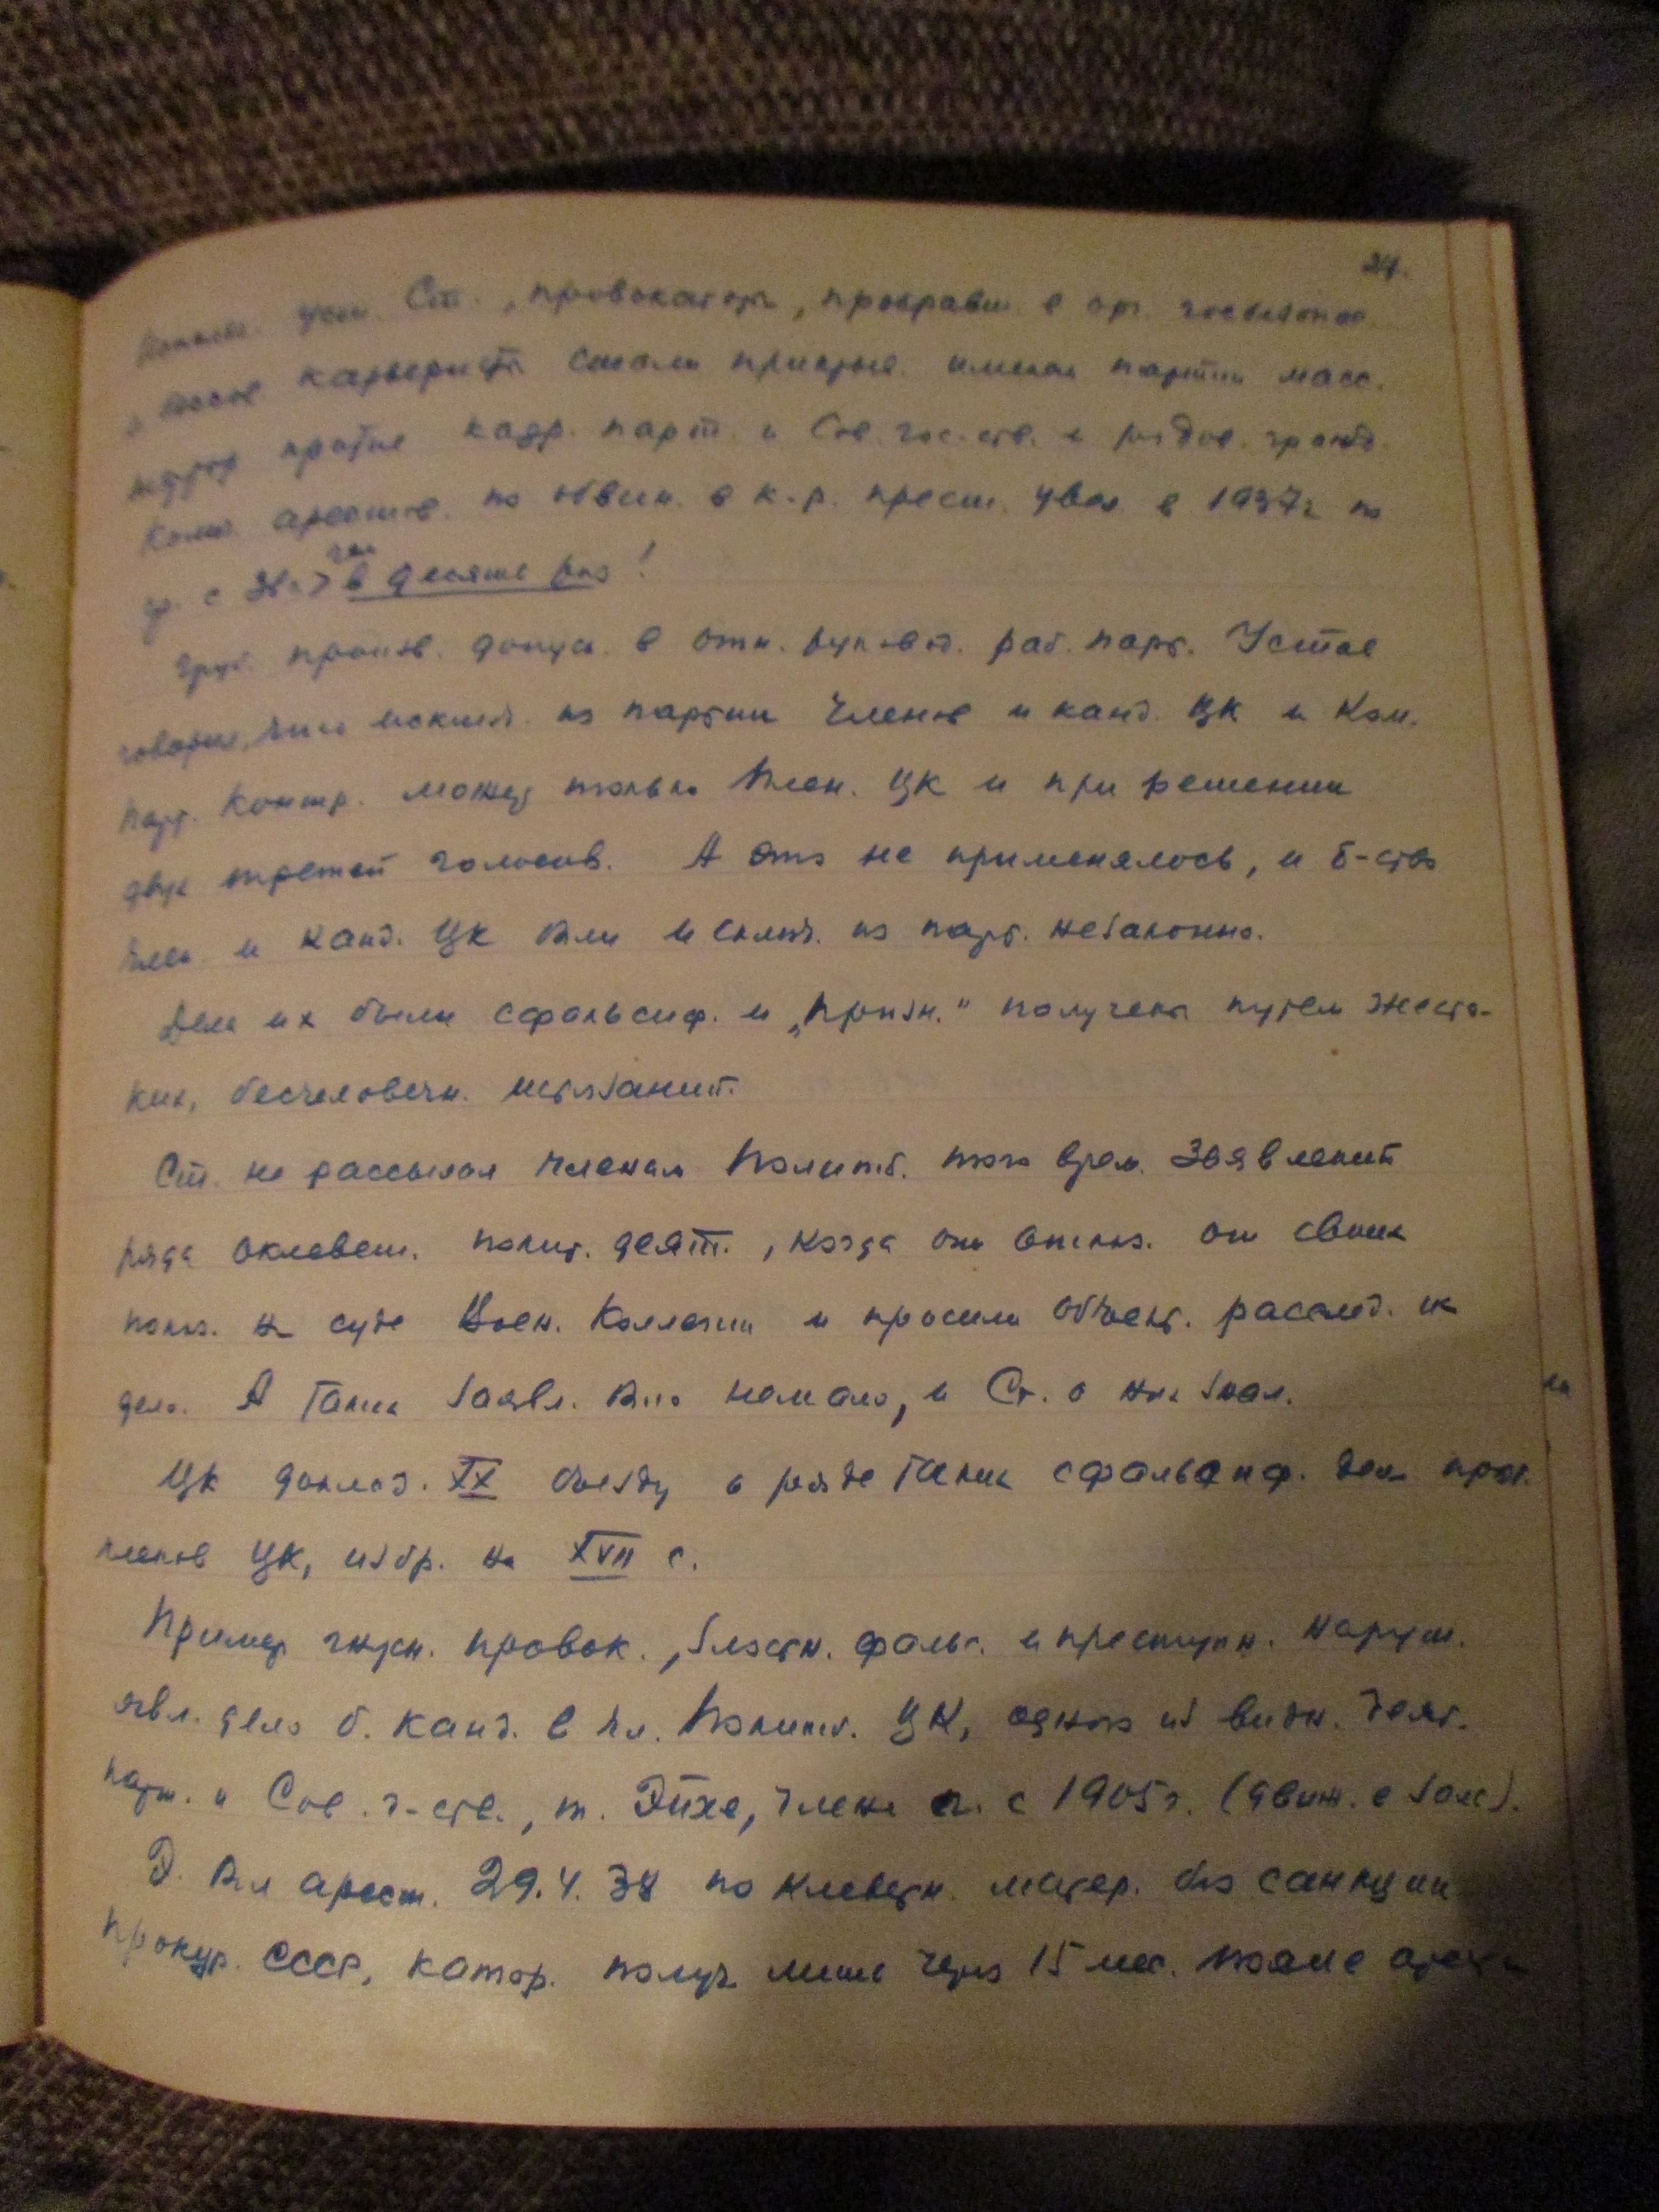 24.
усм. Ст., провокатор, пробравш. в орг. госбезопас.
карьерист стали прикрыв. именем партии масс.
террор против кадр. парт. и Сов. гос. ств. и рядов. гражд.
Колич. арестов. по обвин. в к.-р. прест. увел. в 1937г по
ср. с 36г > чем в десять раз!
Груб. произв. допущ. в отн. руковод. раб. парт. Устав
говорил, что исключ. из партии членов и канд. ЦК и Ком.
Парт. Контр. может только Плен. ЦК и при решении
двух третей голосов. А это не применялось, и б-ство
член. и канд. ЦК были исключ. из парт. незаконно.
Дела их были сфальсиф. и „призн." получены путем жесто-
ких, бесчеловечн. истязаний.
Ст. не рассылал членам Политб. того врем. заявлений
ряда оклевет. полит. деят., когда они отказ. от своих
показ. на суде Воен. Коллегии и просили объект. расслед. их
дело. А таких заявл. было немало, и Ст. о них знал.
ЦК доклад. XX съезду о ряде таких сфальсиф. дел прот.
членов ЦК, избр. на XVII с.
Пример гнусн. провок., злостн. фальс. и преступн. наруш.
явл. дело б. канд. в чл. Политб. ЦК, одного из видн. деят.
парт. и Сов. г-ств., т. Эйхе, члена п. с 1905г.
Э. был арест. 29.4.38 по клеветн. матер. без санкции
прокур. СССР, котор. получ. лишь через 15 мес. после ареста